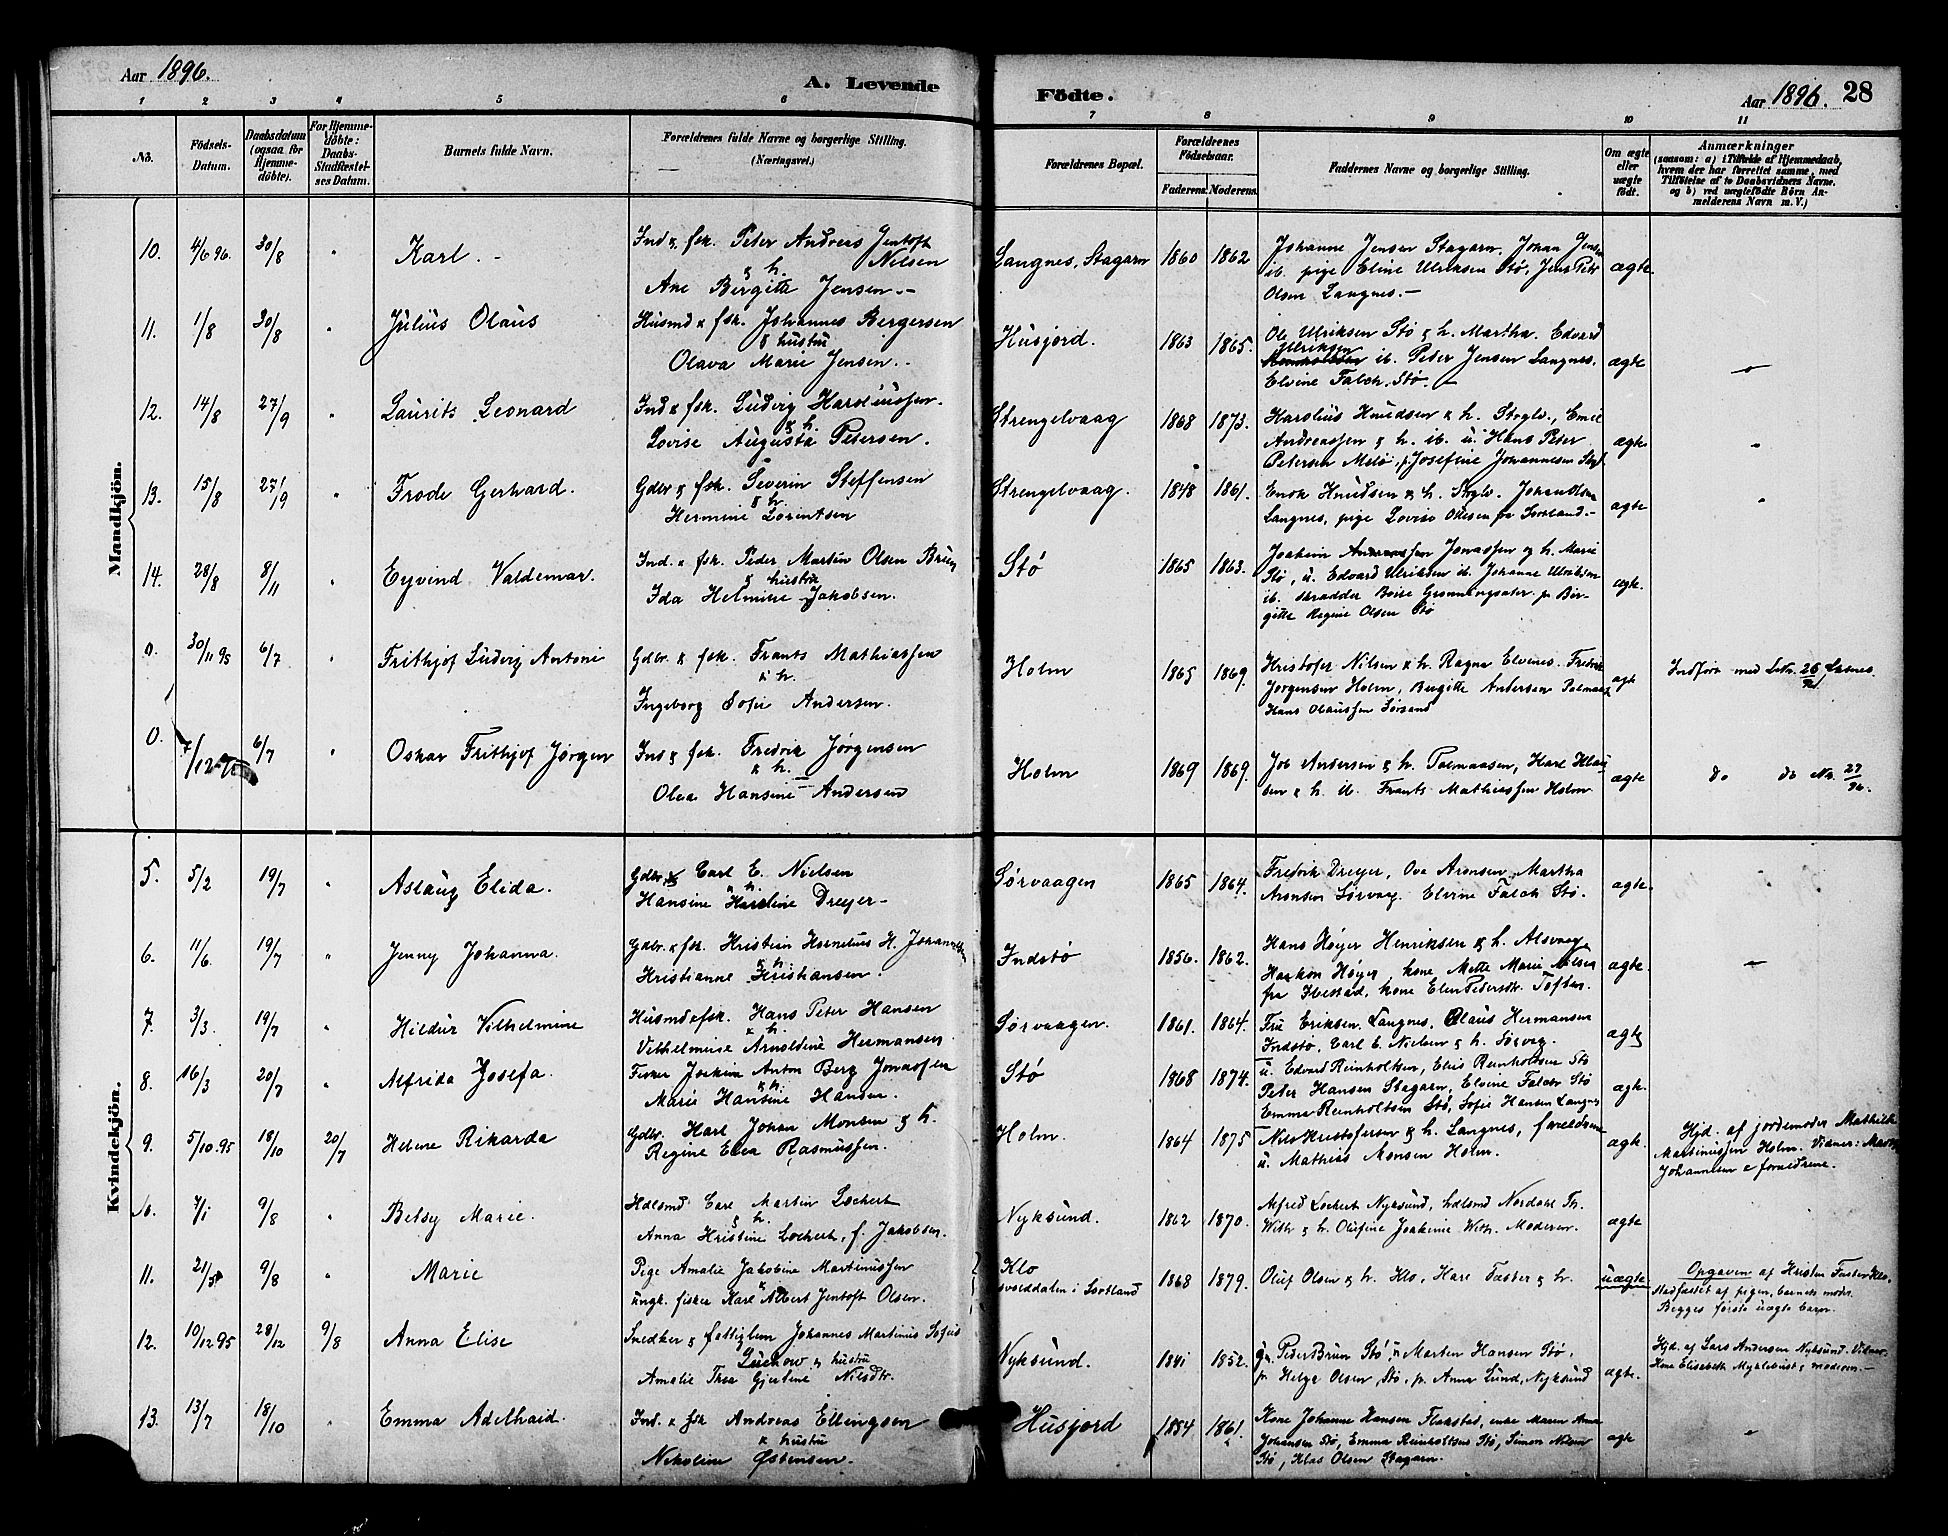 Aar 1896.
A. Levende Födte.
Aar 1896. 28
1 2 3 4 5 6 7 8 9 10 11
No.
Födsels-Datum.
Daabsdatum (ogsaa for Hjemmedöbte).
For Hjemmedöbte: Daabs-Stadfæstelses Datum.
Barnets fulde Navn.
Forældrenes fulde Navne og borgerlige Stilling. (Næringsvei.)
Forældrenes Bopæl.
Forældrenes Födselsaar.
Faderens. Moderens.
Faddernes Navne og borgerlige Stilling.
Om ægte eller uægte født.
Anmærkninger
(saasom: a) i Tilfælde af Hjemmedaab, hvem der har forrettet samme, med Tilföielse af to Daabsvidners Navne, og b) ved uægtefödte Börn Anmelderens Navn m. V.)
Mandkjön.
10. 4/6 96. 30/8 " Karl. Ind. & fsk. Peder Andreas Jentoft Nilsen & h. Ane Bergitte Jensen. Langnes, Stagarn 1860 1862 Johanne Jensen Stagarn. Johan Jensen ib. pige Eline Ulriksen Stø, Jens Petr Olsen Langnes. ægte
11. 1/8 30/8 " Julius Olaus Husmd & fsk. Johannes Bergersen & hustru Olava Marie Jensen. Husjord. 1863 1865. Ole Ulriksen Stø & h. Martha. Edvard Ulriksen ib. Peder Jensen Langnes. Elvine Falch. Stø. ægte "
12. 14/8 27/9 " Laurits Leonard Ind & fsk. Ludvig Haroliussen & h. Lovise Augusta Petersen. Strengelvaag 1868 1873. Harolius Knudsen & h. Strglv., Emil Andreassen & h. ib. u. Hans Peter Petersen Melø, p. Josefine Johannesen ægte "
13. 15/8 27/9 " Frode Gerhard. Gdbr & fsk. Severin Steffensen & h. Hermine Lorintsen Strengelvaag. 1848 1861. Enok Knudsen & h. Strglv. Johan Olsen Langnes, pige Lovise Ottesen fra Sortland. ægte "
14. 28/8 8/11 Eyvind Valdemar. Ind. & fsk. Peder Martin Olsen Brun & hustru Ida Helmine Jakobsen. Stø 1865 1863. Joakim Jonassen og h. Marie Stø, u. Edvard Ulriksen ib. Johanne Ulriksen ib. skrædder Grønningsæter p. Birgitte Regine Olsen Stø ægte.
0. 30/11 95 6/7 " Frithjof Ludvig Antoni Gdbr. & fsk. Frants Mathiassen & h. Ingeborg Sofie Andersen. Holm 1865 1869. Kristofer Nilsen & h. Ragna Elvenes. Fredrik Jørgensen Holm, Birgitte Andersen Hans Olaussen Sørsand ægte Indført med LNr. 26
0. 7/12 95 6/7 " Oskar Frithjof Jørgen Ind & fsk. Fredrik Jørgensen & h. Olea Hansine Andersen Holm 1869 1869. Job Andersen & h. Karl & h. ib. Frants Mathiassen Holm. ægte do do Nr. 27/96.
Kvindekjön.
5. 5/2 19/7 " Aslaug Elida. Gdbr. Carl E. Nielsen & h. Hansine Dreyer Sørvaagen 1865 1864. Fredrik Dreyer, Ove Aronsen Martha Aronsen Sørvaag. Elvine Falch Stø. ægte "
6. 11/6 19/7 " Jenny Johanna. Gdbr. & fsk. Kristian Kornelius H. Johannessen & h. Kristianne Kristiansen. Indstø 1856. 1862. Hans Høyer Henriksen & h. Alsvaag Haakon Høyer, kone Mette Marie Nilsen fra Ibestad, kone Elen Pedersdtr. Toften. ægte.
7. 3/3. 19/7 " Hildur Vilhelmine Husmd & fsk. Hans Peter Hansen & h. Vilhelmine Arnoldine Hermansen Sørvaagen. 1861. 1864. Fru Eriksen, Langnes, Olaus Hermansen Indstø, Carl E. Nielsen & h. Sørvaag. ægte
8. 16/3 20/7 " Alfrida Josefa. Fisker Joakim Anton Berg Jonassen & h. Marie Hansine Hansen. Stø 1868 1874. u. Edvard Reinholtsen, Elis Reinholtsen Stø Peter Hansen Stagarn, Elvine Falch Stø Emma Reinholtsen Stø, Sofie Hansen Langnes ægte.
9. 5/10 95 18/10 20/7 Helene Rikarda Gdbr. Karl Johan Monsen & h. Regine Elea Rasmussen. Holm. 1864 1875 Nils Kristofersen & h. Langnes, forældrene u. Mathias Monsen Holm. ægte. Hjd. af jordemoder Mathilde Martinussen Holm. Vidner: Johannesen & forældrene.
10. 7/1 9/8 " Betsy Marie. Hdlsmd Carl Martin Lochert & h. Anna Kristine Lochert, f. Jakobsen. Nyksund. 1862 1870. Alfred Lochert Nyksund, hdlsmd Nordahl Th. With & h. Olufine Joakime With. Moderen. ægte
11. 21/5 9/8 " Marie Pige Amalie Jakobine Martinussen & ungk. fisker Karl Albert Jentoft Olsen. Klo i Sortland 1868 1879. Oluf Olsen & h. Klo, Hans Faster & h. uægte Opgaven af Kristen Faster Klo. Stadfæstet af pigen, barnets moder. Begges første uægte barn.
12. 10/12 95 28/12 9/8 Anna Elise Snedker & fattiglem Johannes Martinus Sofus Lüchow & hustru Amalie Trea Gjertine Nilsdtr. Nyksund. 1841 1852. Peder Brun Stø, u. Morten Hansen Stø, p. Helga Olsen, Stø, p. Anna Lund, Nyksund ægte. Hjd. af Lars Andersen Nyksund. Vidner: Kone Elisabeth Myklebust & moderen.
13. 13/7 18/10 Emma Adelhaid. Ind. & fsk Andreas Ellingsen & hustru Nikoline Østensen. Husjord 1854 1861. Kone Johanne Hansen Flakstad, enke Maren Anna Johansen Stø, Emma Reinholtsen Stø, Simon Nilsen Stø, Klas Olsen Stagarn. ægte "